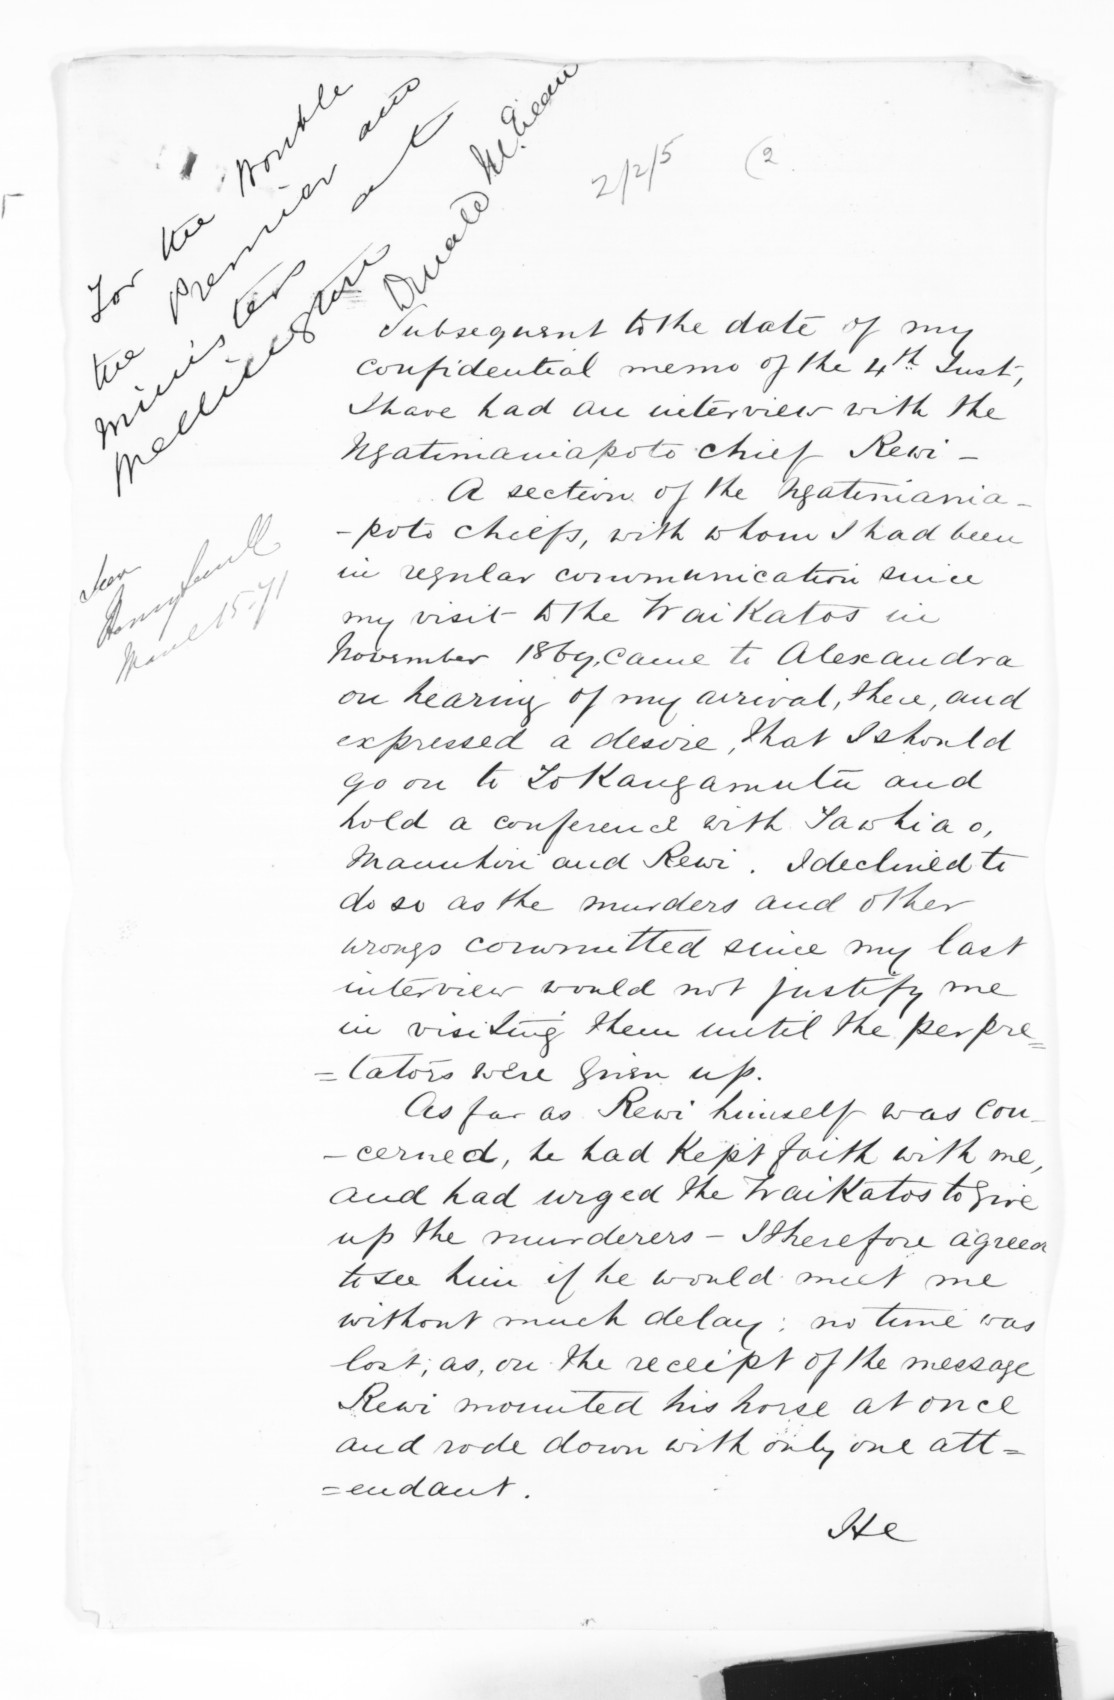 For the Honble
the Premier and
Ministers at
Wellington
Donald McLean
2/2/5
(2
Seen
Henry Sewell
March 15. 71
Subsequent to the date of my
confidential memo of the 4th Inst,
I have had an interview with the
Ngatimaniapoto chief Rewi -
A section of the Ngatimania-
-poto chiefs, with whom I had been
in regular communication since
my visit to the Waikatos in
November 1869, came to Alexandra
on hearing of my arrival, there, and
expressed a desire, that I should
go on to Tokangamutu and
hold a conference with Tawhiao,
Manuhiri and Rewi. I declined to
do so as the murders and other
wrongs committed since my last
interview would not justify me
in visiting them until the perpre=
=tators were given up.
As far as Rewi himself was con-
-cerned, he had kept faith with me,
and had urged the Waikatos to give
up the murderers - I therefore agreed
to see him if he would meet me
without much delay; no time was
lost, as, on the receipt of the message
Rewi mounted his horse at once
and rode down with only one att=
=endant.
He